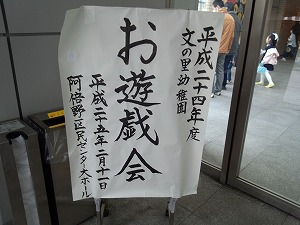 平成二十四年度
文の里幼稚園
お遊戯会
平成二十五年二月十一日
阿倍野区民センター大ホール